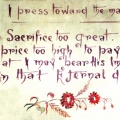 I press toward the ma
Sacrifice too great.
price too high to pay
at I may bear this Im
in that Eternal d